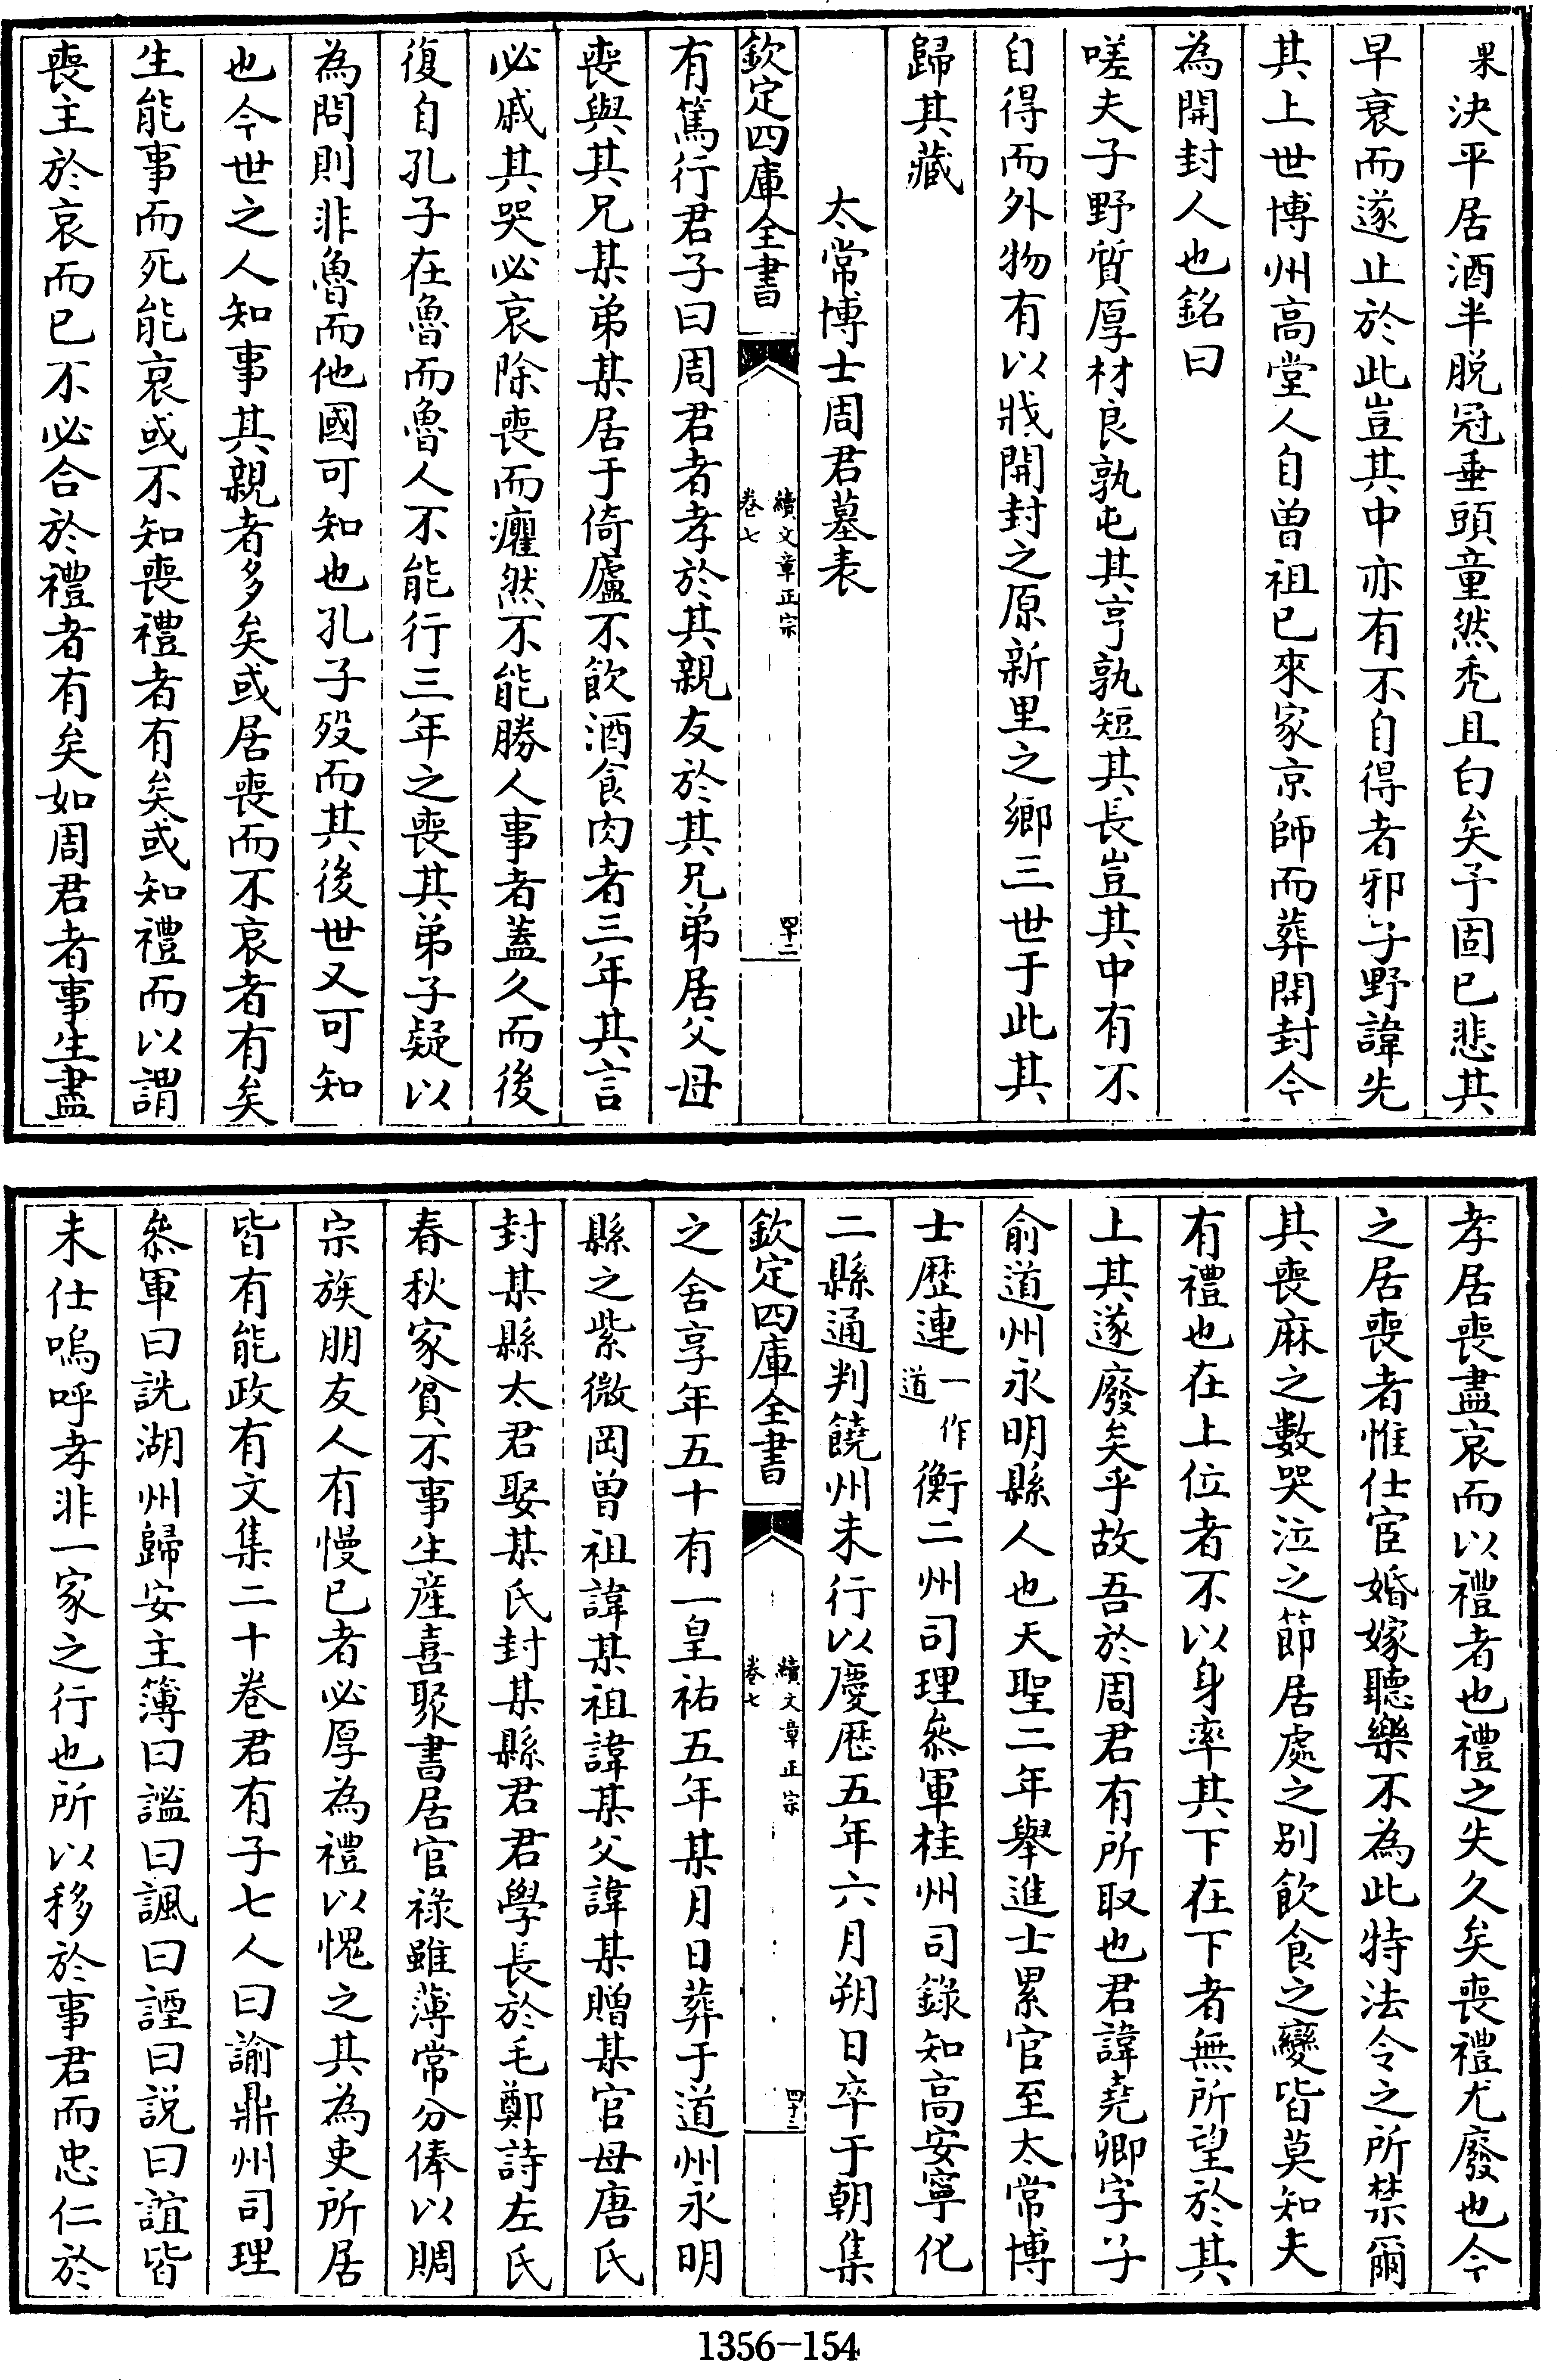 果決平居酒半脱冠垂頭童然秃且白矣予固已悲其
早衰而遂止於此豈其中亦有不自得者邪子野諱先
其上世博州高堂人自曽祖已來家京師而葬開封今
為開封人也銘曰
嗟夫子野質厚材良孰屯其亨孰短其長豈其中有不
自得而外物有以戕開封之原新里之鄉三世于此其
歸其藏
太常博士周君墓表
欽定四庫全書
續文章正宗
卷七
四十二
有篤行君子曰周君者孝於其親友於其兄弟居父母
喪與其兄某弟某居于倚廬不飲酒食肉者三年其言
必戚其哭必哀除喪而癯然不能勝人事者蓋久而後
復自孔子在魯而魯人不能行三年之喪其弟子疑以
為問則非魯而他國可知也孔子殁而其後世又可知
也今世之人知事其親者多矣或居喪而不哀者有矣
生能事而死能哀或不知喪禮者有矣或知禮而以謂
喪主於哀而已不必合於禮者有矣如周君者事生盡
孝居喪盡哀而以禮者也禮之失久矣喪禮尤廢也今
之居喪者惟仕宦婚嫁聽樂不為此特法令之所禁爾
其喪麻之數哭泣之節居處之别飲食之變皆莫知夫
有禮也在上位者不以身率其下在下者無所望於其
上其遂廢矣乎故吾於周君有所取也君諱堯卿字子
俞道州永明縣人也天聖二年舉進士累官至太常博
士歴連一作道衡二州司理叅軍桂州司錄知高安寧化
二縣通判饒州未行以慶厯五年六月朔日卒于朝集
欽定四庫全書
續文章正宗
卷七
四十三
之舍享年五十有一皇祐五年某月日葬于道州永明
縣之紫微岡曽祖諱某祖諱某父諱某贈某官母唐氏
封某縣太君娶某氏封某縣君君學長於毛鄭詩左氏
春秋家貧不事生産喜聚書居官祿雖薄常分俸以賙
宗族朋友人有慢已者必厚為禮以愧之其為吏所居
皆有能政有文集二十卷君有子七人曰諭鼎州司理
叅軍曰詵湖州歸安主簿曰謐曰諷曰諲曰説曰誼皆
未仕嗚呼孝非一家之行也所以移於事君而忠仁於
1356-154